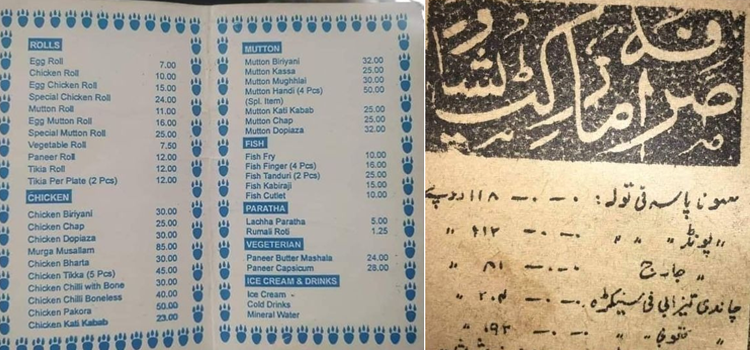 ROLLS
Egg Roll 7.00
Chicken Roll 10.00
Egg Chicken Roll 15.00
Special Chicken Roll 24.00
Mutton Roll 11.00
Egg Mutton Roll 16.00
Special Mutton Roll 25.00
Vegetable Roll 7.50
Paneer Roll 12.00
Tikia Roll 12.00
Tikia Per Plate (2 Pcs) 12.00
CHICKEN
Chicken Biriyani 30.00
Chicken Chap 25.00
Chicken Dopiaza 30.00
Murga Musallam 85.00
Chicken Bharta 30.00
Chicken Tikka (5 Pcs) 45.00
Chicken Chilli with Bone 30.00
Chicken Chilli Boneless 40.00
Chicken Pakora 50.00
Chicken Kali Kabab 23.00
MUTTON
Mutton Biriyani 32.00
Mutton Kassa 25.00
Mutton Mughhlai 30.00
Mutton Handi (4 Pcs) 50.00
(Spl. Item)
Mutton Kali Kabab 25.00
Mutton Chap 25.00
Mutton Dopiaza 32.00
FISH
Fish Fry 10.00
Fish Finger (4 Pcs) 16.00
Fish Tanduri (2 Pcs) 25.00
Fish Kabiraji 15.00
Fish Cutlet 10.00
PARATHA
Lachha Paratha 5.00
Rumali Roti 1.25
VEGETERIAN
Paneer Butter Mashala 24.00
Paneer Capsicum 28.00
ICE CREAM & DRINKS
Ice Cream -
Cold Drinks
Mineral Water
صرافہ مارکیٹ پشاور
سونا پاسہ فی تولہ: ۰-۰-۱۱۸ روپے
〃 پونڈ 〃 〃 ۰-۰- 〃
〃 جارج ۰-۰-۸۱ 〃
چاندی تیزابی فی سیکڑہ ۰-۰-۲۰۴ 〃
〃 ۰-۰-۱۹۲ 〃